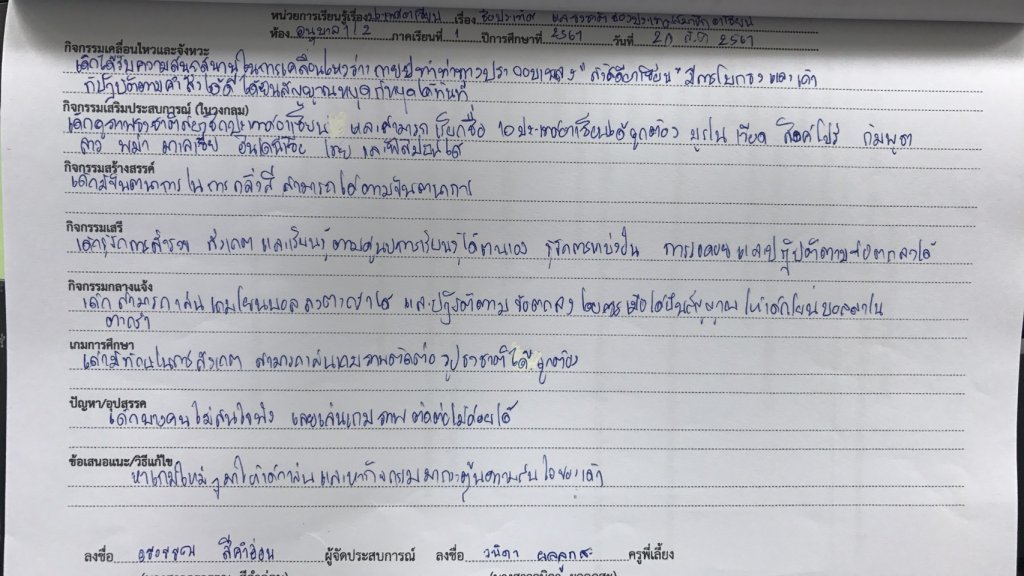 หน่วยการเรียนรู้เรื่อง ประเทศอาเซียน เรื่อง ชื่อประเทศ และธงชาติ ของประเทศสมาชิกอาเซียน
ห้อง อนุบาล 1/2 ภาคเรียนที่ 1 ปีการศึกษาที่ 2561 วันที่ 2561
กิจกรรมเคลื่อนไหวและจังหวะ
เด็กได้รับความสนุกสนานในการเคลื่อนไหวร่างกาย ทำท่าทางประกอบเพลง "สวัสดีอาเซียน" มีการโบกธง และ
ปฏิบัติตามคำสั่งได้ดี ได้ยินสัญญาณหยุดก็หยุดได้ทันที
กิจกรรมเสริมประสบการณ์ (ในวงกลม)
เด็กดูภาพธงชาติสมาชิกประเทศอาเซียน และสามารถ เรียกชื่อ 10 ประเทศอาเซียนได้ถูกต้อง บรูไน เวียด สิงคโปร์ กัมพูชา
ลาว พม่า มาเลเซีย อินโดนีเซีย ไทย และฟิลิปปินส์ได้
กิจกรรมสร้างสรรค์
เด็กมีจินตนาการในการกลิ้งสี สามารถได้ตามจินตนาการ
กิจกรรมเสรี
เด็กรู้จักการสำรวจ สังเกต และเรียนรู้ตามศูนย์การเรียนรู้ได้ตนเอง รู้จักการแบ่งปัน การรอคอย และปฏิบัติตามข้อตกลงได้
กิจกรรมกลางแจ้ง
เด็กสามารถเล่นเกมโยนบอลลงตาข่ายได้ และปฏิบัติตามข้อตกลง เมื่อได้ยินสัญญาณ ให้เด็กโยนบอลลงใน
ตาข่าย
เกมการศึกษา
เด็กมีทักษะในการสังเกต สามารถเล่นเกมภาพตัดต่อ รูปธงชาติได้ ถูกต้อง
ปัญหา/อุปสรรค
เด็กบางคนไม่สนใจฟัง เลยเล่นเกมภาพตัดต่อไม่ค่อยได้
ข้อเสนอแนะ/วิธีแก้ไข
หาเกมใหม่ๆ มาให้เด็กเล่น และหากิจกรรมมากระตุ้นความสนใจของเด็ก
ลงชื่อ สีคำอ่อน ผู้จัดประสบการณ์ ลงชื่อ วนิดา ครูพี่เลี้ยง